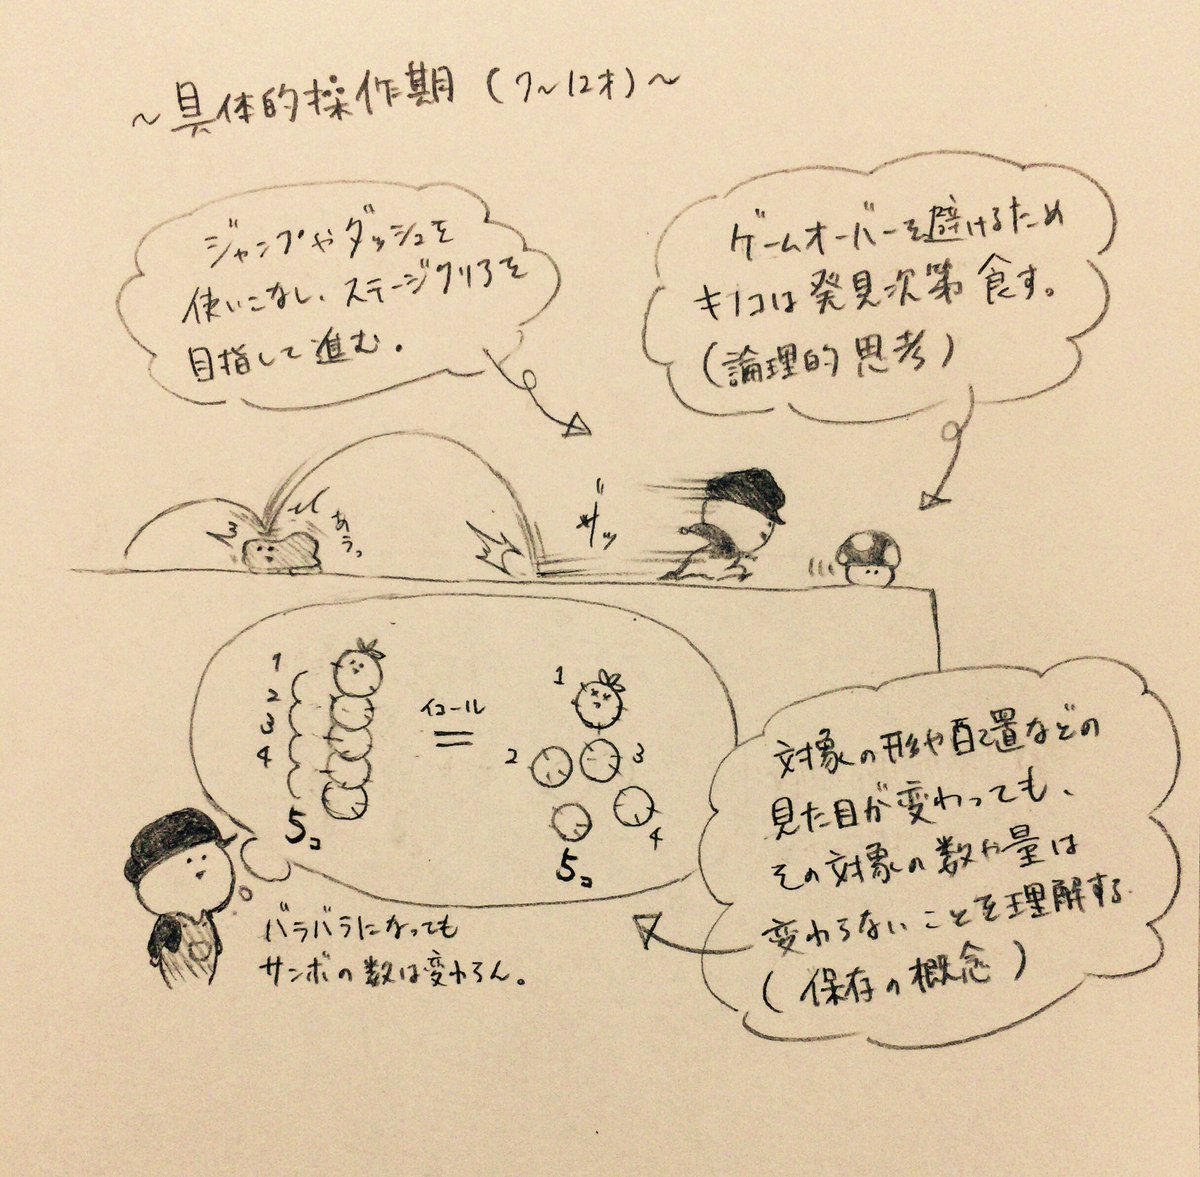 ～具体的操作期（7～12才）～
ジャンプやダッシュを
使いこなし、ステージクリアを
目指して進む。
ゲームオーバーを避けるため
キノコは発見次第食す。
（論理的思考）
あうっ
ダッ
1
2
3
4
5コ
イコール
=
1
2
3
4
5コ
バラバラになっても
サンボの数は変わらん。
対象の形や配置などの
見た目が変わっても、
その対象の数や量は
変わらないことを理解する
（保存の概念）